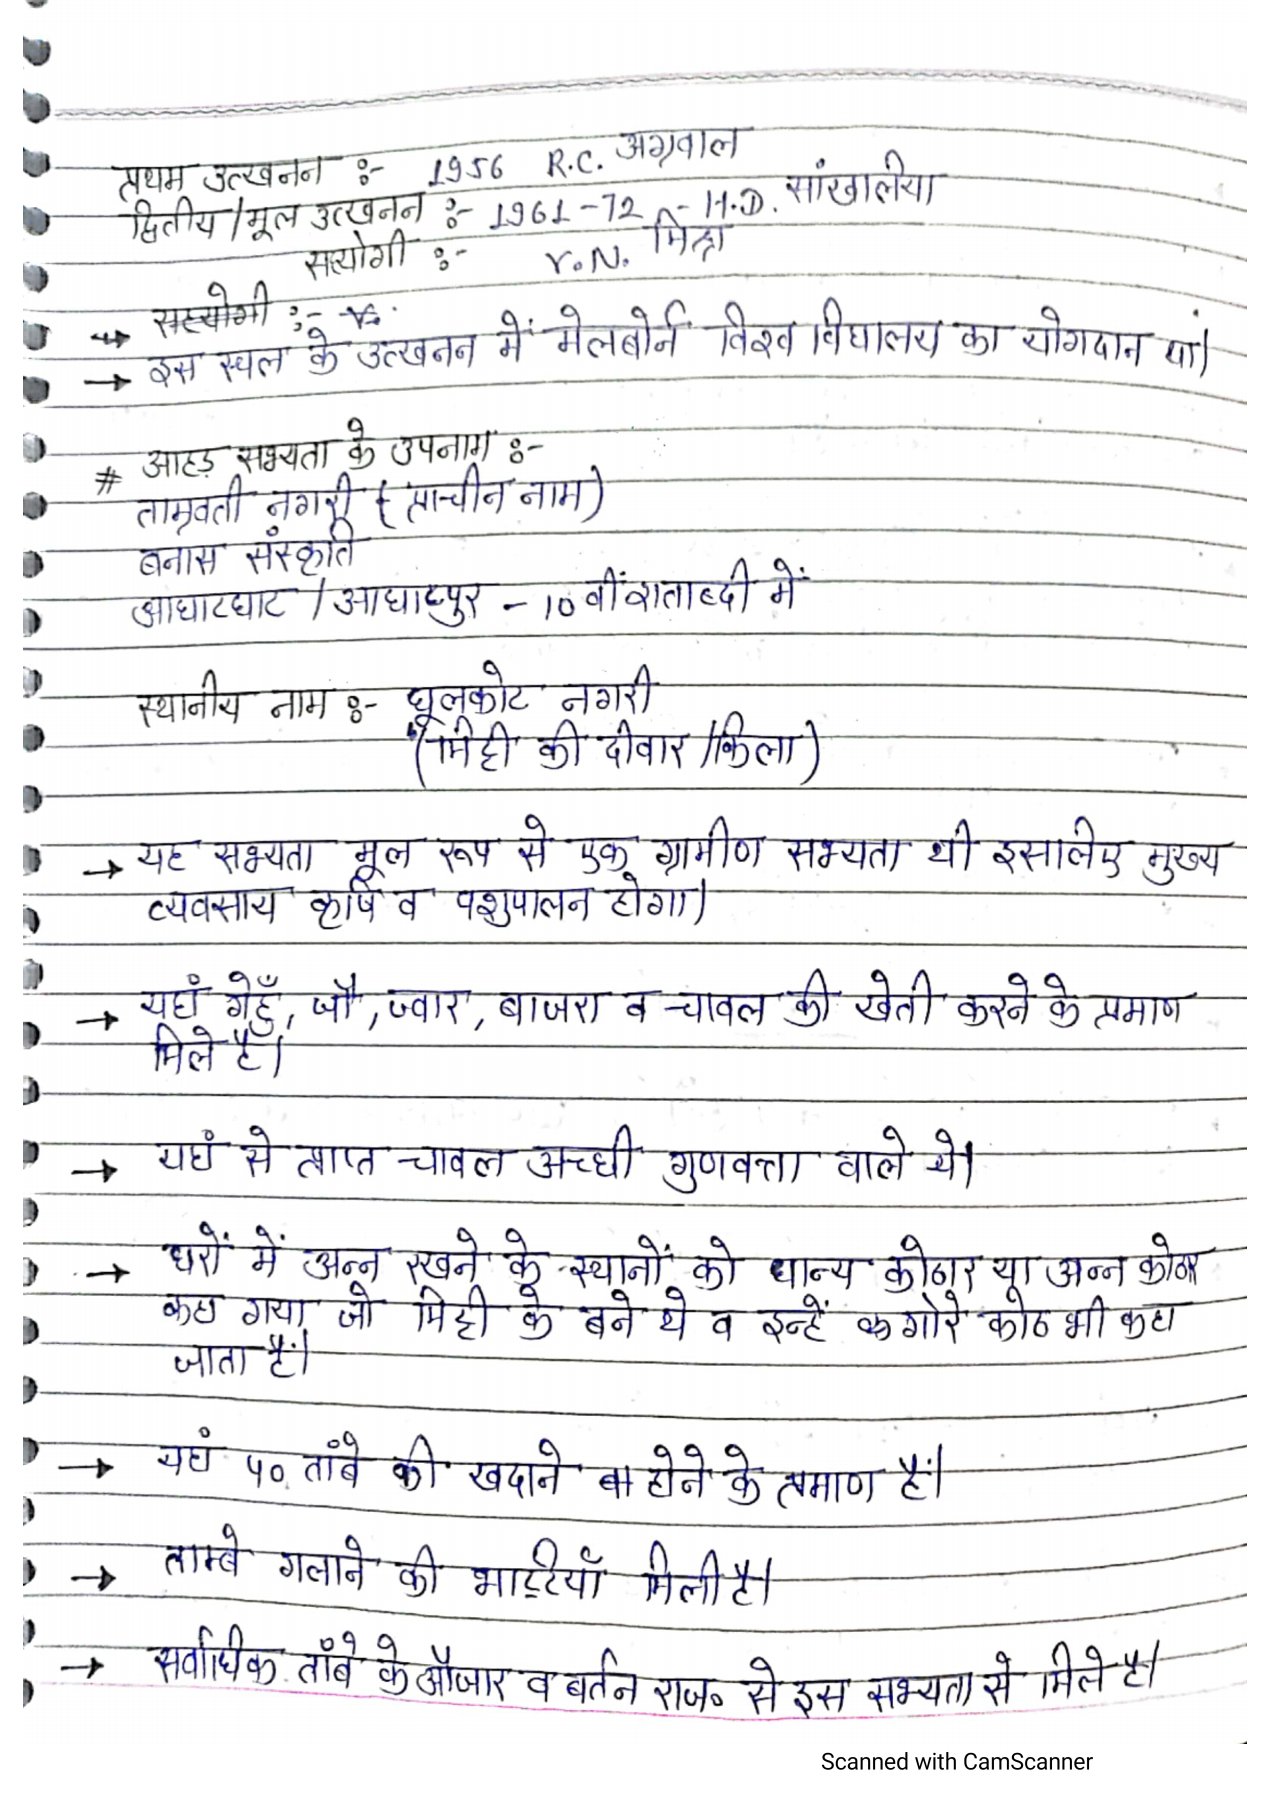 प्रथम उत्खनन :- 1956 R.C. अग्रवाल
द्वितीय/मूल उत्खनन :- 1961-72 - H.D. सांखालिया
सहयोगी :- V.N. मिश्रा
→ सहयोगी :-
→ इस स्थल के उत्खनन में मेलबोर्न विश्व विद्यालय का योगदान था।
# आहड़ सभ्यता के उपनाम :-
ताम्रवती नगरी (प्राचीन नाम)
बनास संस्कृति
आघाटघाट / आघाटपुर - 10 वीं शताब्दी में
स्थानीय नाम :- धूलकोट नगरी
(मिट्टी की दीवार/किला)
→ यह सभ्यता मूल रूप से एक ग्रामीण सभ्यता थी इसलिए मुख्य
व्यवसाय कृषि व पशुपालन होगा।
→ यहाँ गेहूँ, जौ, ज्वार, बाजरा व चावल की खेती करने के प्रमाण
मिले है।
→ यहाँ से प्राप्त चावल अच्छी गुणवत्ता वाले थे।
→ घरों में अन्न रखने के स्थानों को धान्य कोठार या अन्न कोठार
कहा गया जो मिट्टी के बने थे व इन्हें गोरे कोठ भी कहा
जाता हैं।
→ यहाँ 40 तांबे की खदाने होने के प्रमाण हैं।
→ ताम्बे गलाने की भाट्टियाँ मिली है।
→ सर्वाधिक ताँबे के औजार व बर्तन राज॰ से इस सभ्यता से मिले है।
Scanned with CamScanner